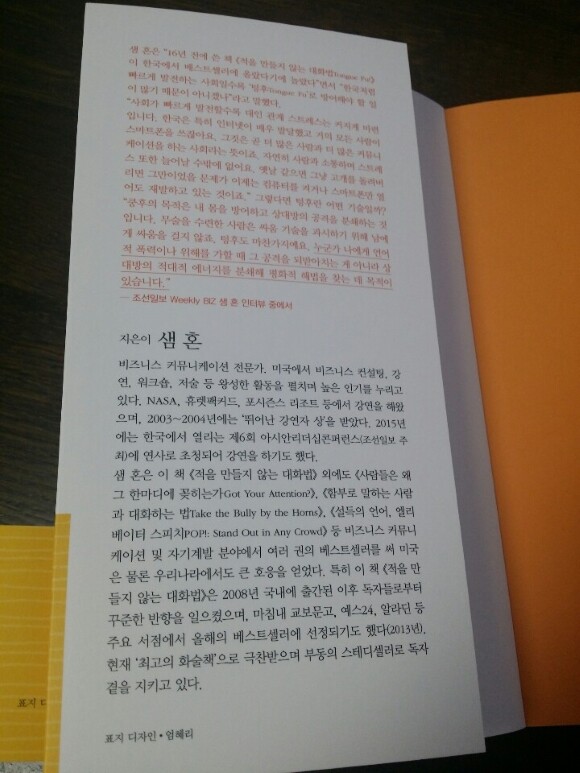 샘 혼은 "16년 전에 쓴 책 《적을 만들지 않는 대화법Tongue Fu》
이 한국에서 베스트셀러에 올랐다기에 놀랐다"면서 "한국처럼
빠르게 발전하는 사회일수록 '텅후Tongue Fu'로 방어해야 할 일
이 많기 때문이 아니겠나"라고 말했다.
"사회가 빠르게 발전할수록 대인 관계 스트레스는 커지게 마련
입니다. 한국은 특히 인터넷이 매우 발달했고 거의 모든 사람이
스마트폰을 쓰잖아요. 그것은 곧 더 많은 사람과 더 많은 커뮤니
케이션을 하는 사회라는 뜻이죠. 자연히 사람과 소통하며 스트레
스 또한 늘어날 수밖에 없어요. 옛날 같으면 그냥 고개를 돌려버
리면 그만이었을 문제가 이제는 컴퓨터를 켜거나 스마트폰만 열
어도 재발하고 있는 것이죠." 그렇다면 텅후란 어떤 기술일까?
"쿵후의 목적은 내 몸을 방어하고 상대방의 공격을 분쇄하는 것
입니다. 무술을 수련한 사람은 싸움 기술을 과시하기 위해 남에
게 싸움을 걸지 않죠. 텅후도 마찬가지예요. 누군가 나에게 언어
적 폭력이나 위해를 가할 때 그 공격을 되받아치는 게 아니라 상
대방의 적대적 에너지를 분쇄해 평화적 해법을 찾는 데 목적이
있습니다."
— 조선일보 Weekly BIZ 샘 혼 인터뷰 중에서
지은이 샘 혼
비즈니스 커뮤니케이션 전문가. 미국에서 비즈니스 컨설팅, 강
연, 워크숍, 저술 등 왕성한 활동을 펼치며 높은 인기를 누리고
있다. NASA, 휴렛팩커드, 포시즌스 리조트 등에서 강연을 해왔
으며, 2003~2004년에는 '뛰어난 강연자 상'을 받았다. 2015년
에는 한국에서 열리는 제6회 아시안리더십콘퍼런스(조선일보 주
최)에 연사로 초청되어 강연을 하기도 했다.
샘 혼은 이 책 《적을 만들지 않는 대화법》 외에도 《사람들은 왜
그 한마디에 꽂히는가Got Your Attention?》, 《함부로 말하는 사람
과 대화하는 법Take the Bully by the Horns》, 《설득의 언어, 엘리
베이터 스피치POP!: Stand Out in Any Crowd》 등 비즈니스 커뮤니
케이션 및 자기계발 분야에서 여러 권의 베스트셀러를 써 미국
은 물론 우리나라에서도 큰 호응을 얻었다. 특히 이 책 《적을 만
들지 않는 대화법》은 2008년 국내에 출간된 이후 독자들로부터
꾸준한 반향을 일으켰으며, 마침내 교보문고, 예스24, 알라딘 등
주요 서점에서 올해의 베스트셀러에 선정되기도 했다(2013년).
현재 '최고의 화술책'으로 극찬받으며 부동의 스테디셀러로 독자
곁을 지키고 있다.
표지 디자인 • 엄혜리
표지 디